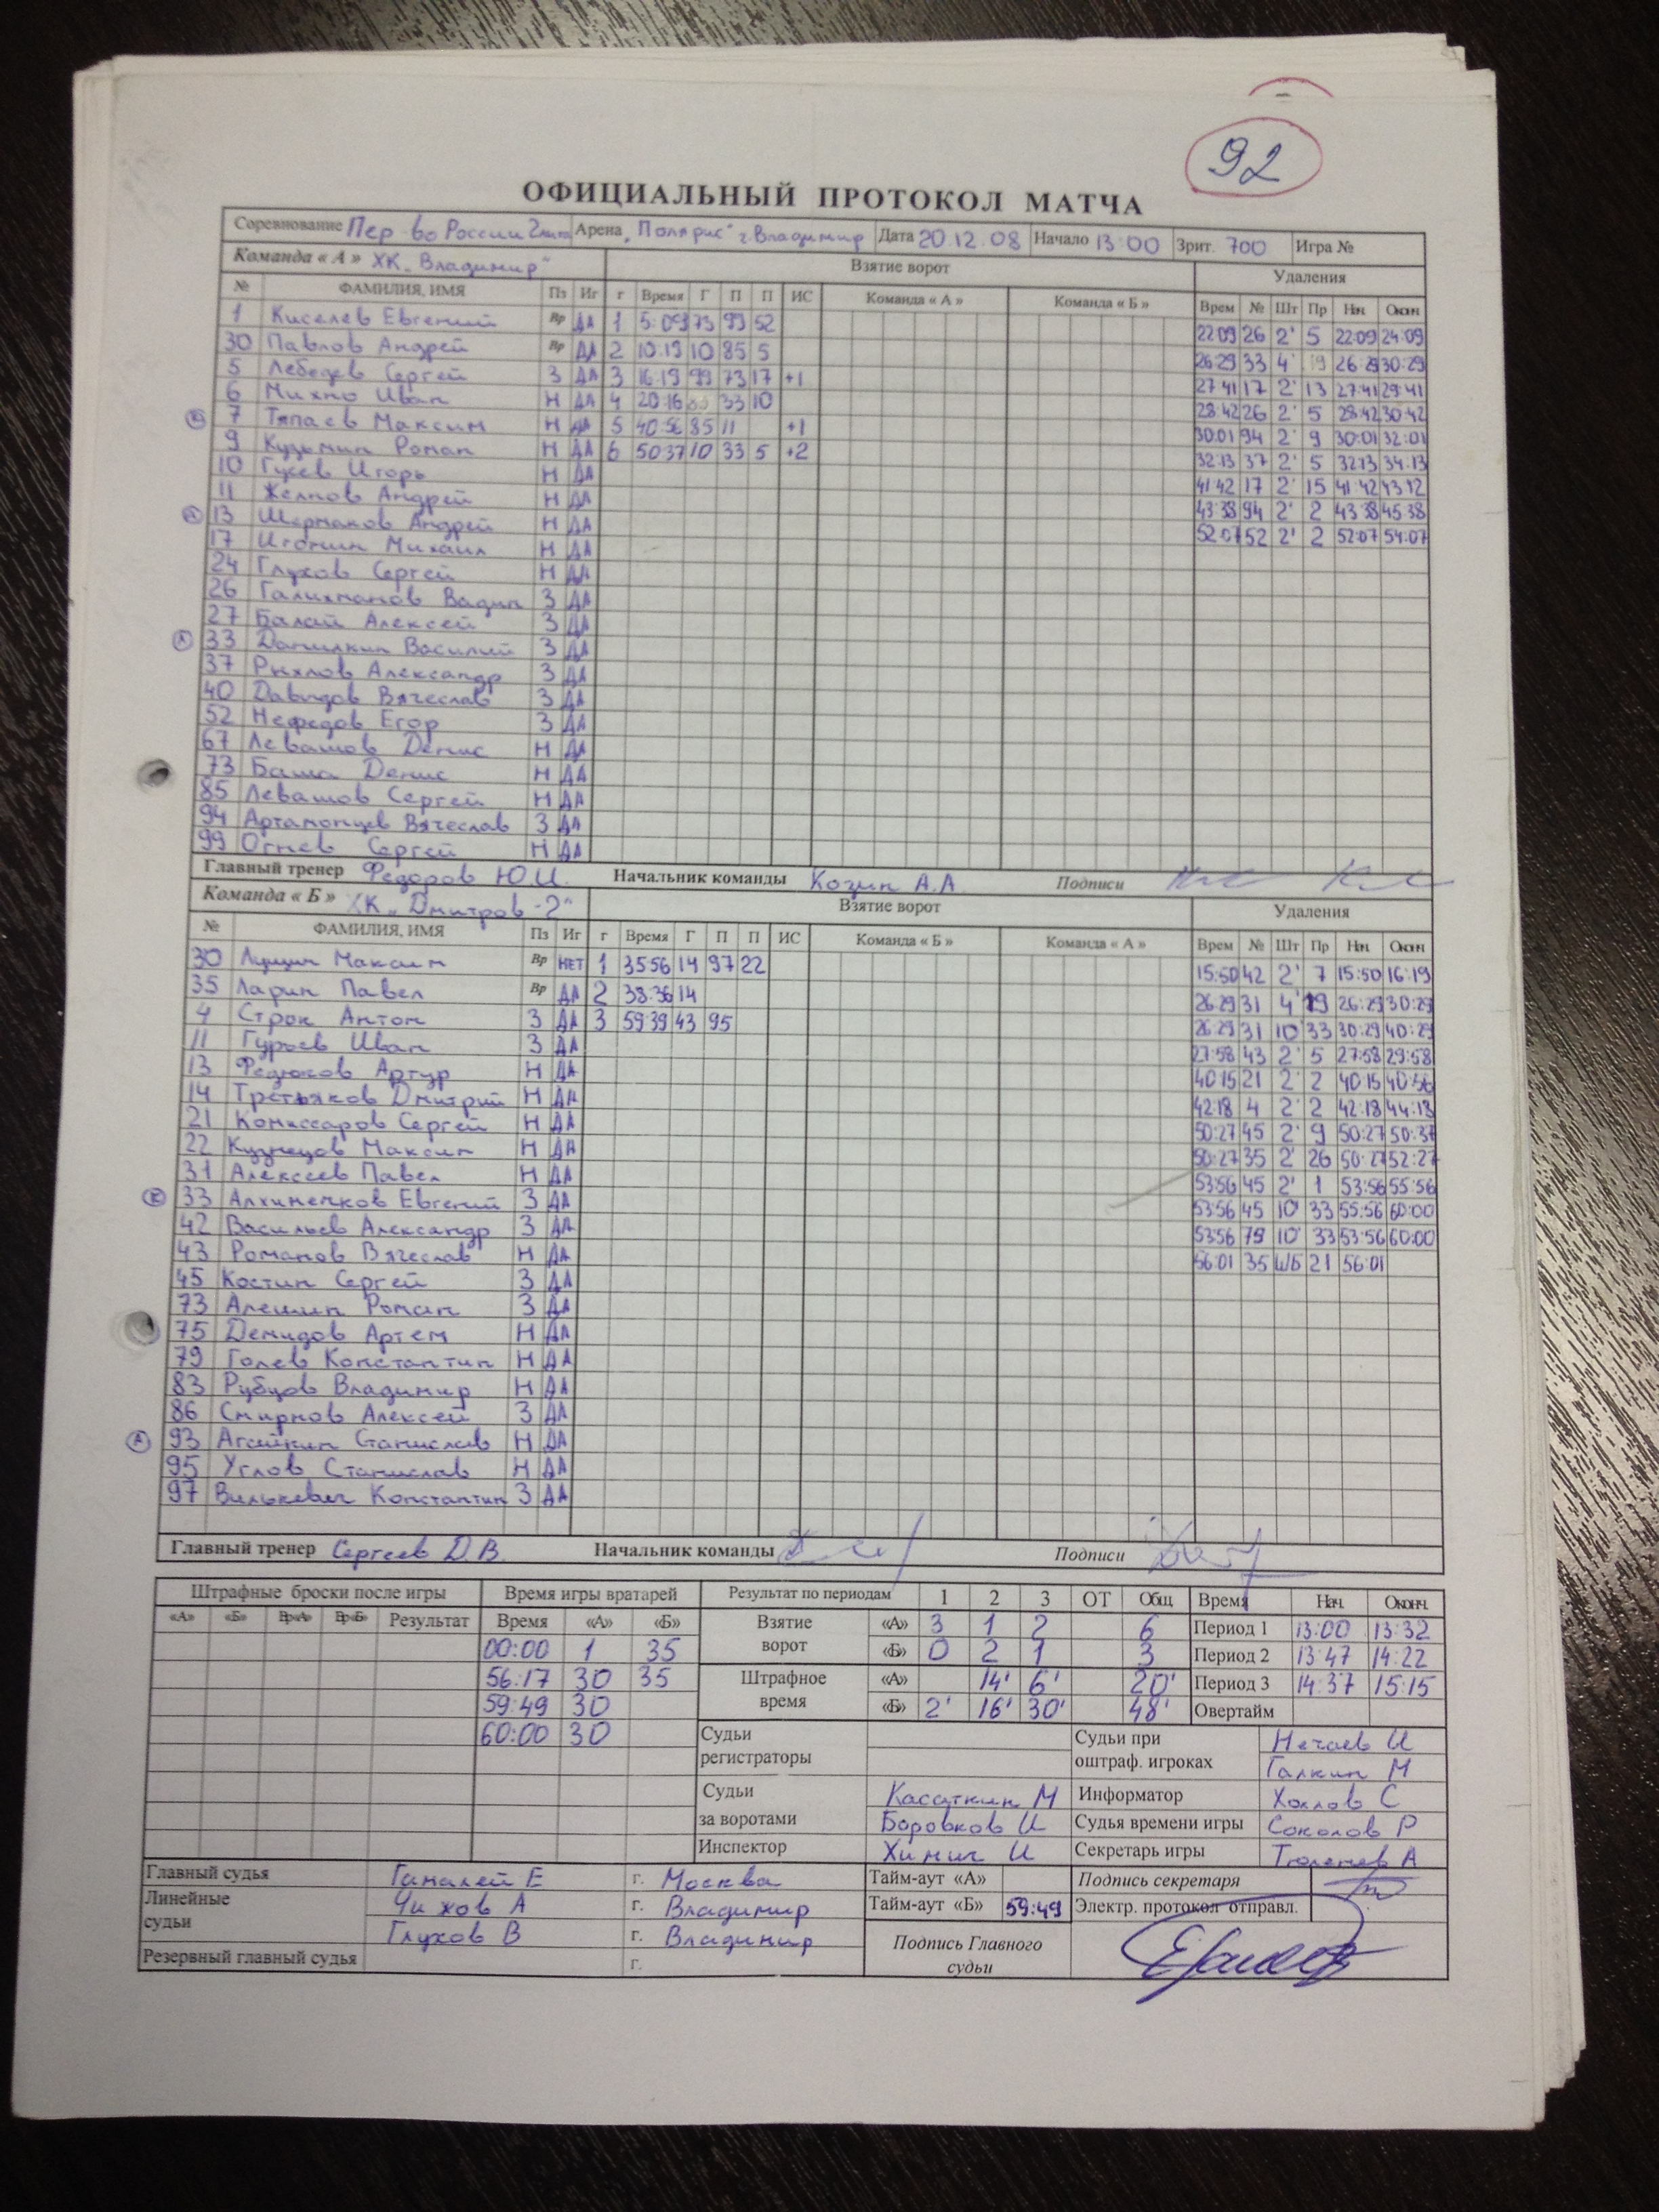 92
ОФИЦИАЛЬНЫЙ ПРОТОКОЛ МАТЧА
Соревнование Пер-во России 2 лига Арена "Полярис" г. Владимир Дата 20.12.08 Начало 13:00 Зрит. 700 Игра №
Команда « А » ХК "Владимир" Взятие ворот Удаления
№ ФАМИЛИЯ, ИМЯ Пз Иг г Время Г П П ИС Команда « А » Команда « Б » Врем № Шт Пр Нач Оконч
1 Киселев Евгений Вр ДА 1 5:09 73 99 52 22:09 26 2' 5 22:09 24:09
30 Павлов Андрей Вр ДА 2 10:19 10 85 5 26:29 33 4' 19 26:29 30:29
5 Лебедев Сергей З ДА 3 16:19 99 73 17 +1 27:41 17 2' 13 27:41 29:41
6 Михно Иван Н ДА 4 20:16 33 10 28:42 26 2' 5 28:42 30:42
К 7 Тяпаев Максим Н ДА 5 40:56 85 11 +1 30:01 94 2' 9 30:01 32:01
9 Кузьмин Роман Н ДА 6 50:37 10 33 5 +2 32:13 37 2' 5 32:13 34:13
10 Гусев Игорь Н ДА 41:42 17 2' 15 41:42 43:12
11 Желнов Андрей Н ДА 43:38 94 2' 2 43:38 45:38
А 13 Шермаков Андрей Н ДА 52:07 52 2' 2 52:07 54:07
17 Игонин Михаил Н ДА
24 Глухов Сергей Н ДА
26 Галиханов Вадим З ДА
27 Балай Алексей З ДА
А 33 Данилкин Василий З ДА
37 Рыхлов Александр З ДА
40 Давыдов Вячеслав З ДА
52 Нефедов Егор З ДА
67 Левашов Денис Н ДА
73 Баша Денис Н ДА
85 Левашов Сергей Н ДА
94 Артамонцев Вячеслав З ДА
99 Огнев Сергей Н ДА
Главный тренер Федоров Ю.И. Начальник команды Козин А.А Подписи
Команда « Б » ХК "Дмитров-2" Взятие ворот Удаления
№ ФАМИЛИЯ, ИМЯ Пз Иг г Время Г П П ИС Команда « Б » Команда « А » Врем № Шт Пр Нач Оконч
30 Максим Вр НЕТ 1 35:56 14 97 22 15:50 42 2' 7 15:50 16:19
35 Ларин Павел Вр ДА 2 38:36 14 26:29 31 4' 19 26:29 30:29
4 Строк Антон З ДА 3 59:39 43 95 26:29 31 10' 33 30:29 40:29
11 Гурьев Иван З ДА 27:58 43 2' 5 27:58 29:58
13 Федюков Артур Н ДА 40:15 21 2' 2 40:15 40:56
14 Третьяков Дмитрий Н ДА 42:18 4 2' 2 42:18 44:18
21 Комиссаров Сергей Н ДА 50:27 45 2' 9 50:27 50:37
22 Кузнецов Максим Н ДА 50:27 35 2' 26 50:27 52:27
31 Алексеев Павел Н ДА 53:56 45 2' 1 53:56 55:56
К 33 Алхименков Евгений З ДА 53:56 45 10' 33 55:56 60:00
42 Васильев Александр З ДА 53:56 79 10' 33 53:56 60:00
43 Романов Вячеслав Н ДА 56:01 35 ШБ 21 56:01
45 Костин Сергей З ДА
73 Алешин Роман З ДА
75 Демидов Артем Н ДА
79 Голев Константин Н ДА
83 Рубцов Владимир Н ДА
86 Смирнов Алексей З ДА
А 93 Агейкин Станислав Н ДА
95 Углов Станислав Н ДА
97 Вилькевич Константин З ДА
Главный тренер Сергеев Д.В. Начальник команды Подписи
Штрафные броски после игры Время игры вратарей Результат по периодам 1 2 3 ОТ Общ Время Нач. Оконч.
«А» «Б» Вр«А» Вр«Б» Результат Время «А» «Б» Взятие ворот «А» 3 1 2 6 Период 1 13:00 13:32
00:00 1 35 «Б» 0 2 1 3 Период 2 13:47 14:22
56:17 30 35 Штрафное время «А» 14' 6' 20' Период 3 14:37 15:15
59:49 30 «Б» 2' 16' 30' 48' Овертайм
60:00 30 Судьи регистраторы Судьи при оштраф. игроках Нечаев И
Галкин М
Судьи за воротами Касаткин М Информатор Хохлов С
Боровков И Судья времени игры Соколов Р
Инспектор Химич И Секретарь игры Тюленев А
Главный судья Гамалей Е г. Москва Тайм-аут «А» Подпись секретаря
Линейные судьи Чижов А г. Владимир Тайм-аут «Б» 59:49 Электр. протокол отправл.
Глухов В г. Владимир Подпись Главного судьи
Резервный главный судья г.